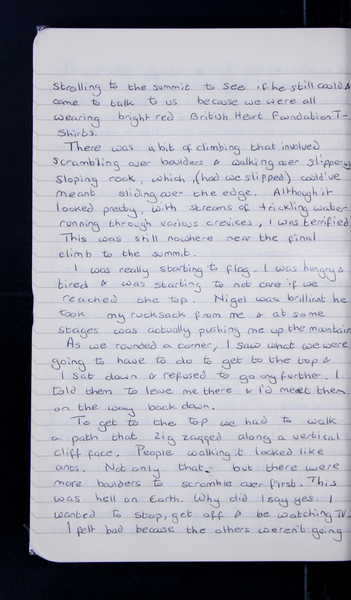 strolling to the summit to see if he still could &
came to talk to us because we were all
wearing bright red British Heart Foundation T-
Shirts.
There was a bit of climbing that involved
scrambling over boulders & walking over slippery
sloping rock, which, (had we slipped) could've
meant sliding over the edge. Although it
looked pretty, with streams of trickling water
running through various crevices, I was terrified
This was still nowhere near the final
climb to the summit.
I was really starting to flag. I was hungry &
tired & was starting to not care if we
reached the top. Nigel was brilliant he
took my rucksack from me & at some
stages was actually pushing me up the mountain
As we rounded a corner, I saw what we were
going to have to do to get to the top &
I sat down & refused to go any further. I
told them to leave me there & I'd meet them
on the way back down.
To get to the top we had to walk
a path that zig zagged along a vertical
cliff face. People walking it looked like
ants. Not only that - but there were
more boulders to scramble over first. This
was hell on Earth. Why did I say yes. I
wanted to stop, get off & be watching TV.
I felt bad because the others weren't going